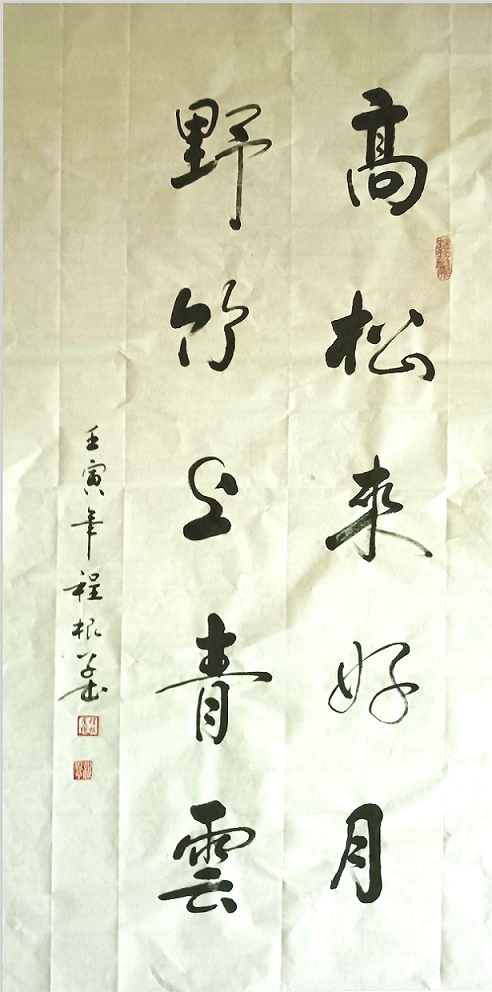 高松來好月
野竹上青雲
壬寅年程根